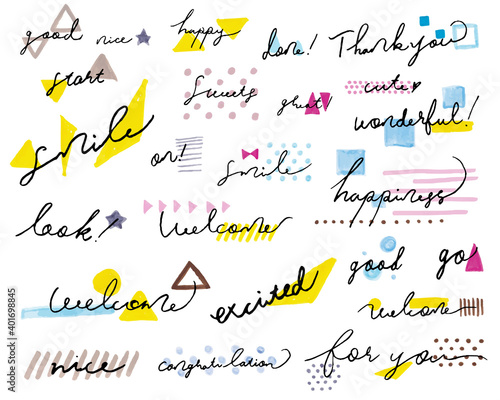 good nice happy done! Thank you
start sweets great! cute wonderful!
smile on! smile happiness
look! Welcome good go
Welcome excited Welcome
nice congratilation for you
Adobe Stock | #401698845